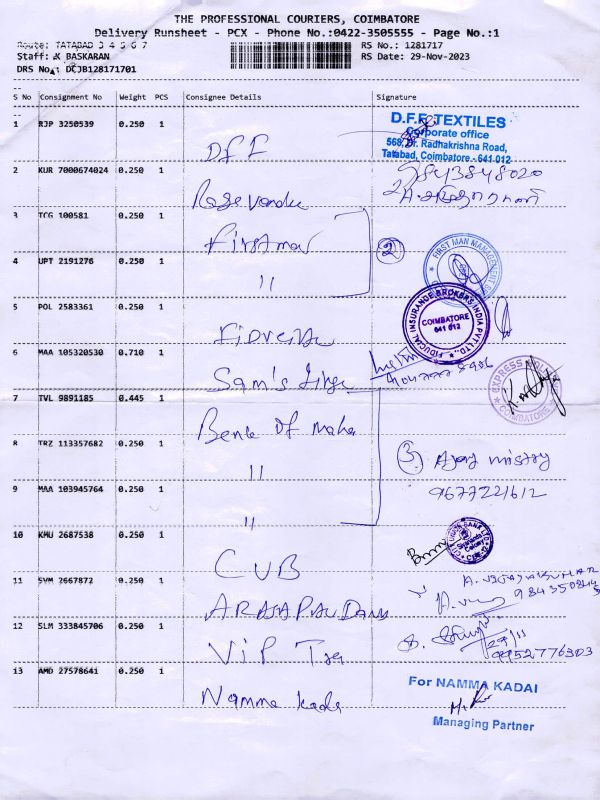 THE PROFESSIONAL COURIERS, COIMBATORE
Delivery Runsheet - PCX - Phone No.:0422-3505555 - Page No.:1
Route: TATABAD 3 4 5 6 7
RS No.: 1281717
Staff: K BASKARAN
RS Date: 29-Nov-2023
DRS No.: DCJB128171701
S No Consignment No Weight PCS Consignee Details Signature
1 RJP 3250539 0.250 1 DFF
D.F.F. TEXTILES
Corporate office
568, Dr. Radhakrishna Road,
Tatabad, Coimbatore - 641 012
2 KUR 7000674024 0.250 1
9843848020
3 TCG 100581 0.250 1 Firstman
(2) FIRST MAN MANAGEMENT
4 UPT 2191276 0.250 1 "
5 POL 2583361 0.250 1
FIDUCIAL INSURANCE BROKERS INDIA PVT LTD.,
COIMBATORE
641 012
6 MAA 105320530 0.710 1 Sam's
EXPRESS
COIMBATORE
7 TVL 9891185 0.445 1 Bank Of Maha
8 TRZ 113357682 0.250 1 "
(3) Ajay mistry
9677221612
9 MAA 103945764 0.250 1 "
10 KMU 2687538 0.250 1 CUB
CITY UNION BANK LTD
11 SVM 2667872 0.250 1 ARAJAPANDANA
A. VIJAYAKUMAR
12 SLM 333845706 0.250 1 VIP
29/11
9952776303
13 AMD 27578641 0.250 1 Namma Kadai
For NAMMA KADAI
Managing Partner